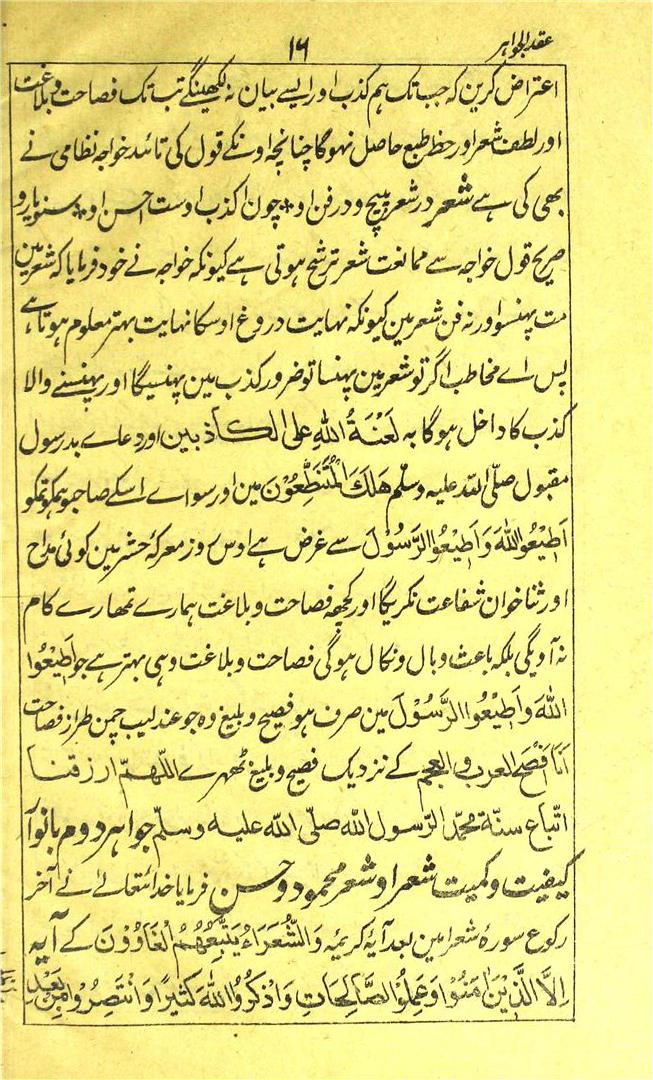 عقد الجواہر
۱۶
اعتراض کرین کہ جب تک ہم کذب اور ایسے بیان نہ لکھینگے تب تک فصاحت و بلاغت
اور لطف شعر اور حظ طبع حاصل نہوگا چنانچہ اونکے قول کی تائد خواجہ نظامی نے
بھی کی ہے شعر در شعر مپیچ و در فن او ٭ چون اکذب اوست احسن او ٭
صریح قول خواجہ سے ممانعت شعر ترشح ہوتی ہے کیونکہ خواجہ نے خود فرمایا کہ شعر مین
مت پہنسو اور نہ فن شعر مین کیونکہ نہایت دروغ اوسکا نہایت بہتر معلوم ہوتا ہے
پس اے مخاطب اگر تو شعر مین پہنسا تو ضرور کذب مین پہنسیگا اور پہنسنے والا
کذب کا داخل ہوگا بہ لَعْنَةُ اللهِ علی الکاذبین اور دعاے بد رسول
مقبول صلّی اللہ علیہ وسلم هَلَكَ الْمُتَنَطِّعُوْنَ مین اور سواے اسکے صاحبو ہمکو تمکو
اَطِیْعُوا اللّٰهَ وَ اَطِیْعُوا الرَّسُوْلَ سے غرض ہے اوس روز معرکۂ حشر مین کوئی مداح
اور ثنا خوان شفاعت نکریگا اور کچھہ فصاحت و بلاغت ہمارے تمھارے کام
نہ آویگی بلکہ باعث وبال و نکال ہوگی فصاحت و بلاغت وہی بہتر ہے جو اَطِیْعُوا
اللّٰهَ وَ اَطِیْعُوا الرَّسُوْلَ مین صرف ہو فصیح و بلیغ وہ جو عندلیب چمن طراز فصاحت
اَنَا اَفْصَحُ العرب و العجم کے نزدیک فصیح و بلیغ ٹھہرے اللّٰهمّ ارزقنا
اتّباع سنّة محمّد الرّسول الله صلّی الله علیه وسلّم جواہر دوم
کیفیت و کمیت شعرا و شعر محمود و حسن فرمایا خداتعالےٰ نے آخر
رکوع سورۂ شعرا مین بعد آیۂ کریمہ وَالشُّعَرَاءُ یَتَّبِعُهُمُ الْغَاوٗوْنَ کے آیہ
اِلَّا الَّذِیْنَ اٰمَنُوْا وَعَمِلُوا الصَّالِحَاتِ وَاذْكُرُوا اللّٰهَ كَثِیْرًا وَّانْتَصِرُوْا مِنْ بَعْدِ